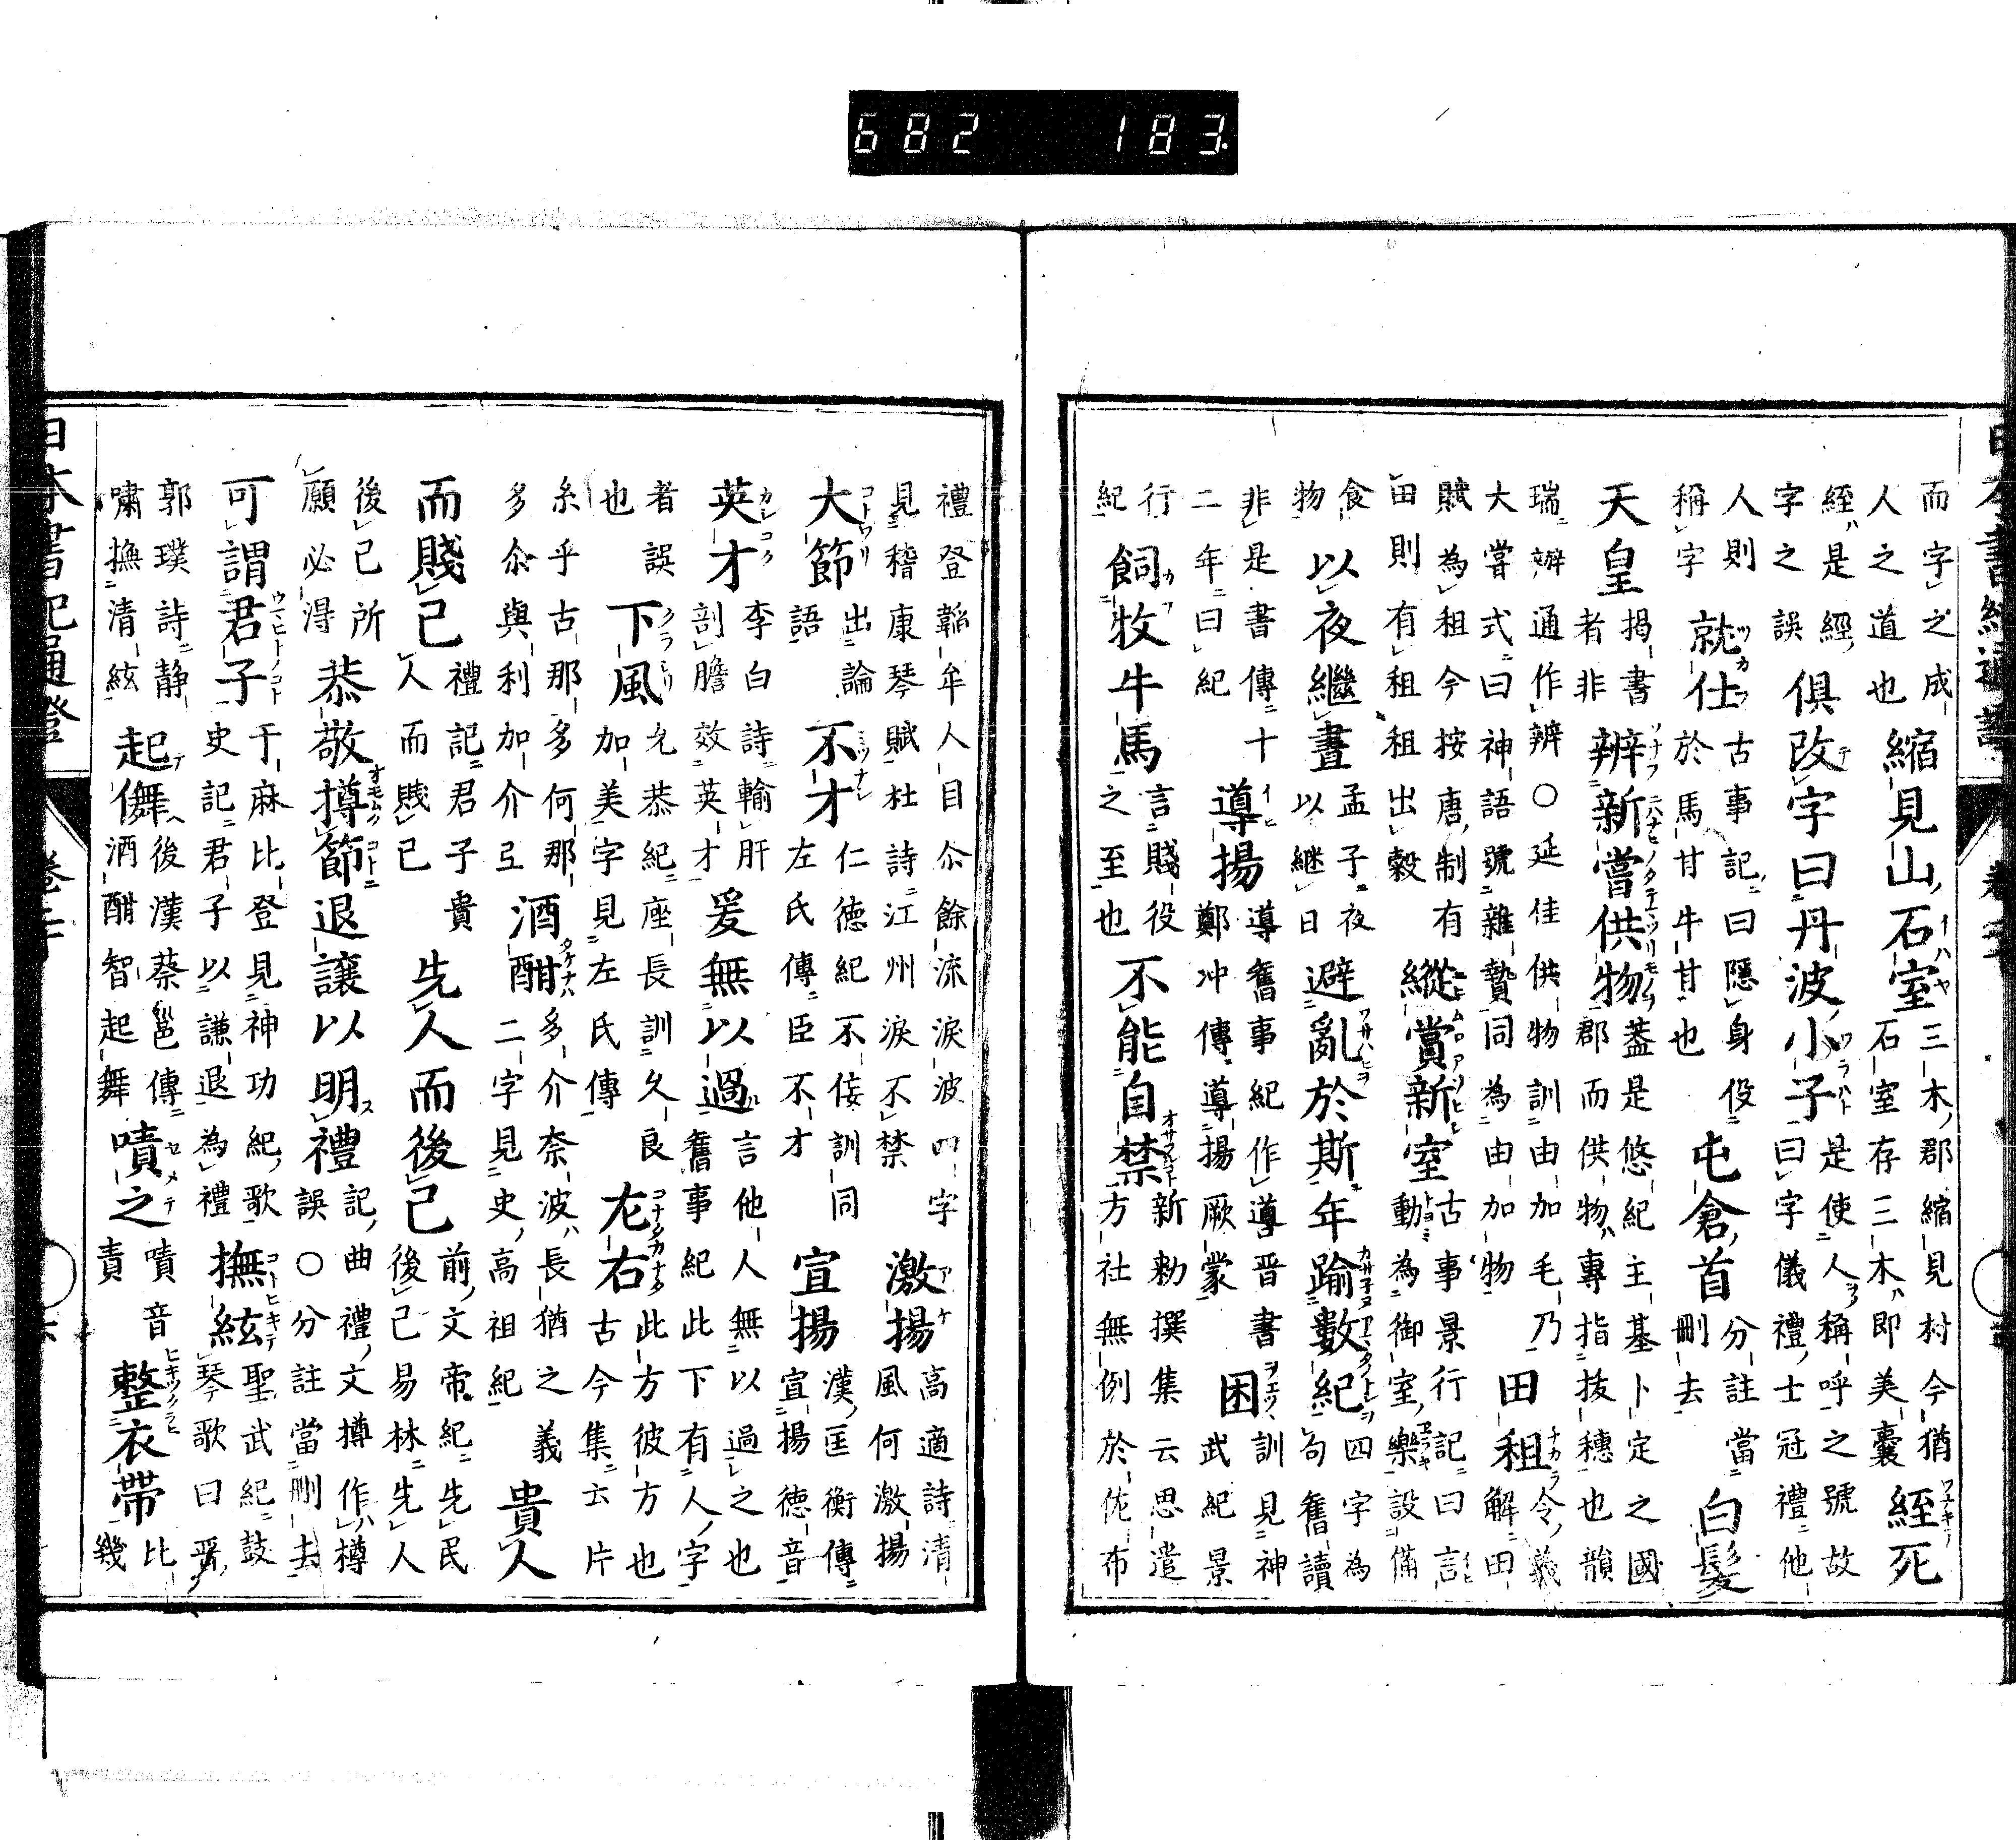 682 183
而字之成人之道也 縮見山石室 三木郡縮見村今猶石室存三木即美囊 経死
経是經字之誤 俱改字曰丹波小子 是使人稱呼之號故曰字儀禮士冠禮他
人則稱字 就仕 古事記曰隱身役於馬甘牛甘也 屯倉首 分註當刪去 白髮
天皇 揭書者非 辨新嘗供物 蓋是悠紀主基卜定之國郡而供物專指抜穗也韻
瑞辨通作辨○延佳供物訓由加毛乃大嘗式曰神語號雜贄同為由加物 田租 令義解田
賦為租今按唐制有田則有租租出穀 縱賞新室 古事景行記曰言動為御室樂設備
食物 以夜繼晝 孟子夜以継日 避亂於斯年踰數紀 四字為句舊讀
非是書傳十二年曰紀 導揚 導舊事紀作導晋書鄭冲傳導揚厥蒙 困 訓見神武紀景
行紀 飼牧牛馬 言賤役之至也 不能自禁 新勅撰集云思遣方社無例於佐布
禮登韜牟人目尒餘流淚波四字見稽康琴賦杜詩江州淚不禁 激揚 高適詩清風何激揚
大節 出論語 不才 仁德紀不佞訓同左氏傳臣不才 宣揚 漢匡衡傳宣揚德音
英才 李白詩輸肝剖膽效英才 爰無以過 言他人無以過之也舊事紀此下有人字
者誤也 下風 允恭紀座長訓久良加美字見左氏傳 右 此方彼方也古今集云片
糸乎古那多何那多尒與利加加介弖 酒酣 多介奈波長猶之義二字見史高祖紀 貴人
而賤己 禮記君子貴人而賤己 先人而後己 前文帝紀先民後己易林先人
後己所願必得 恭敬撙節退讓以明禮 記曲禮文撙作樽誤○分註當刪去
可謂君子 于麻比登見神功紀歌史記君子以謙退為禮 撫絃 聖武紀鼓琴歌曰
郭璞詩靜嘯撫清絃 起儛 後漢蔡邕傳酒酣智起舞 嘖之 嘖音責 整衣帶 比幾
日本書紀通證 卷二十